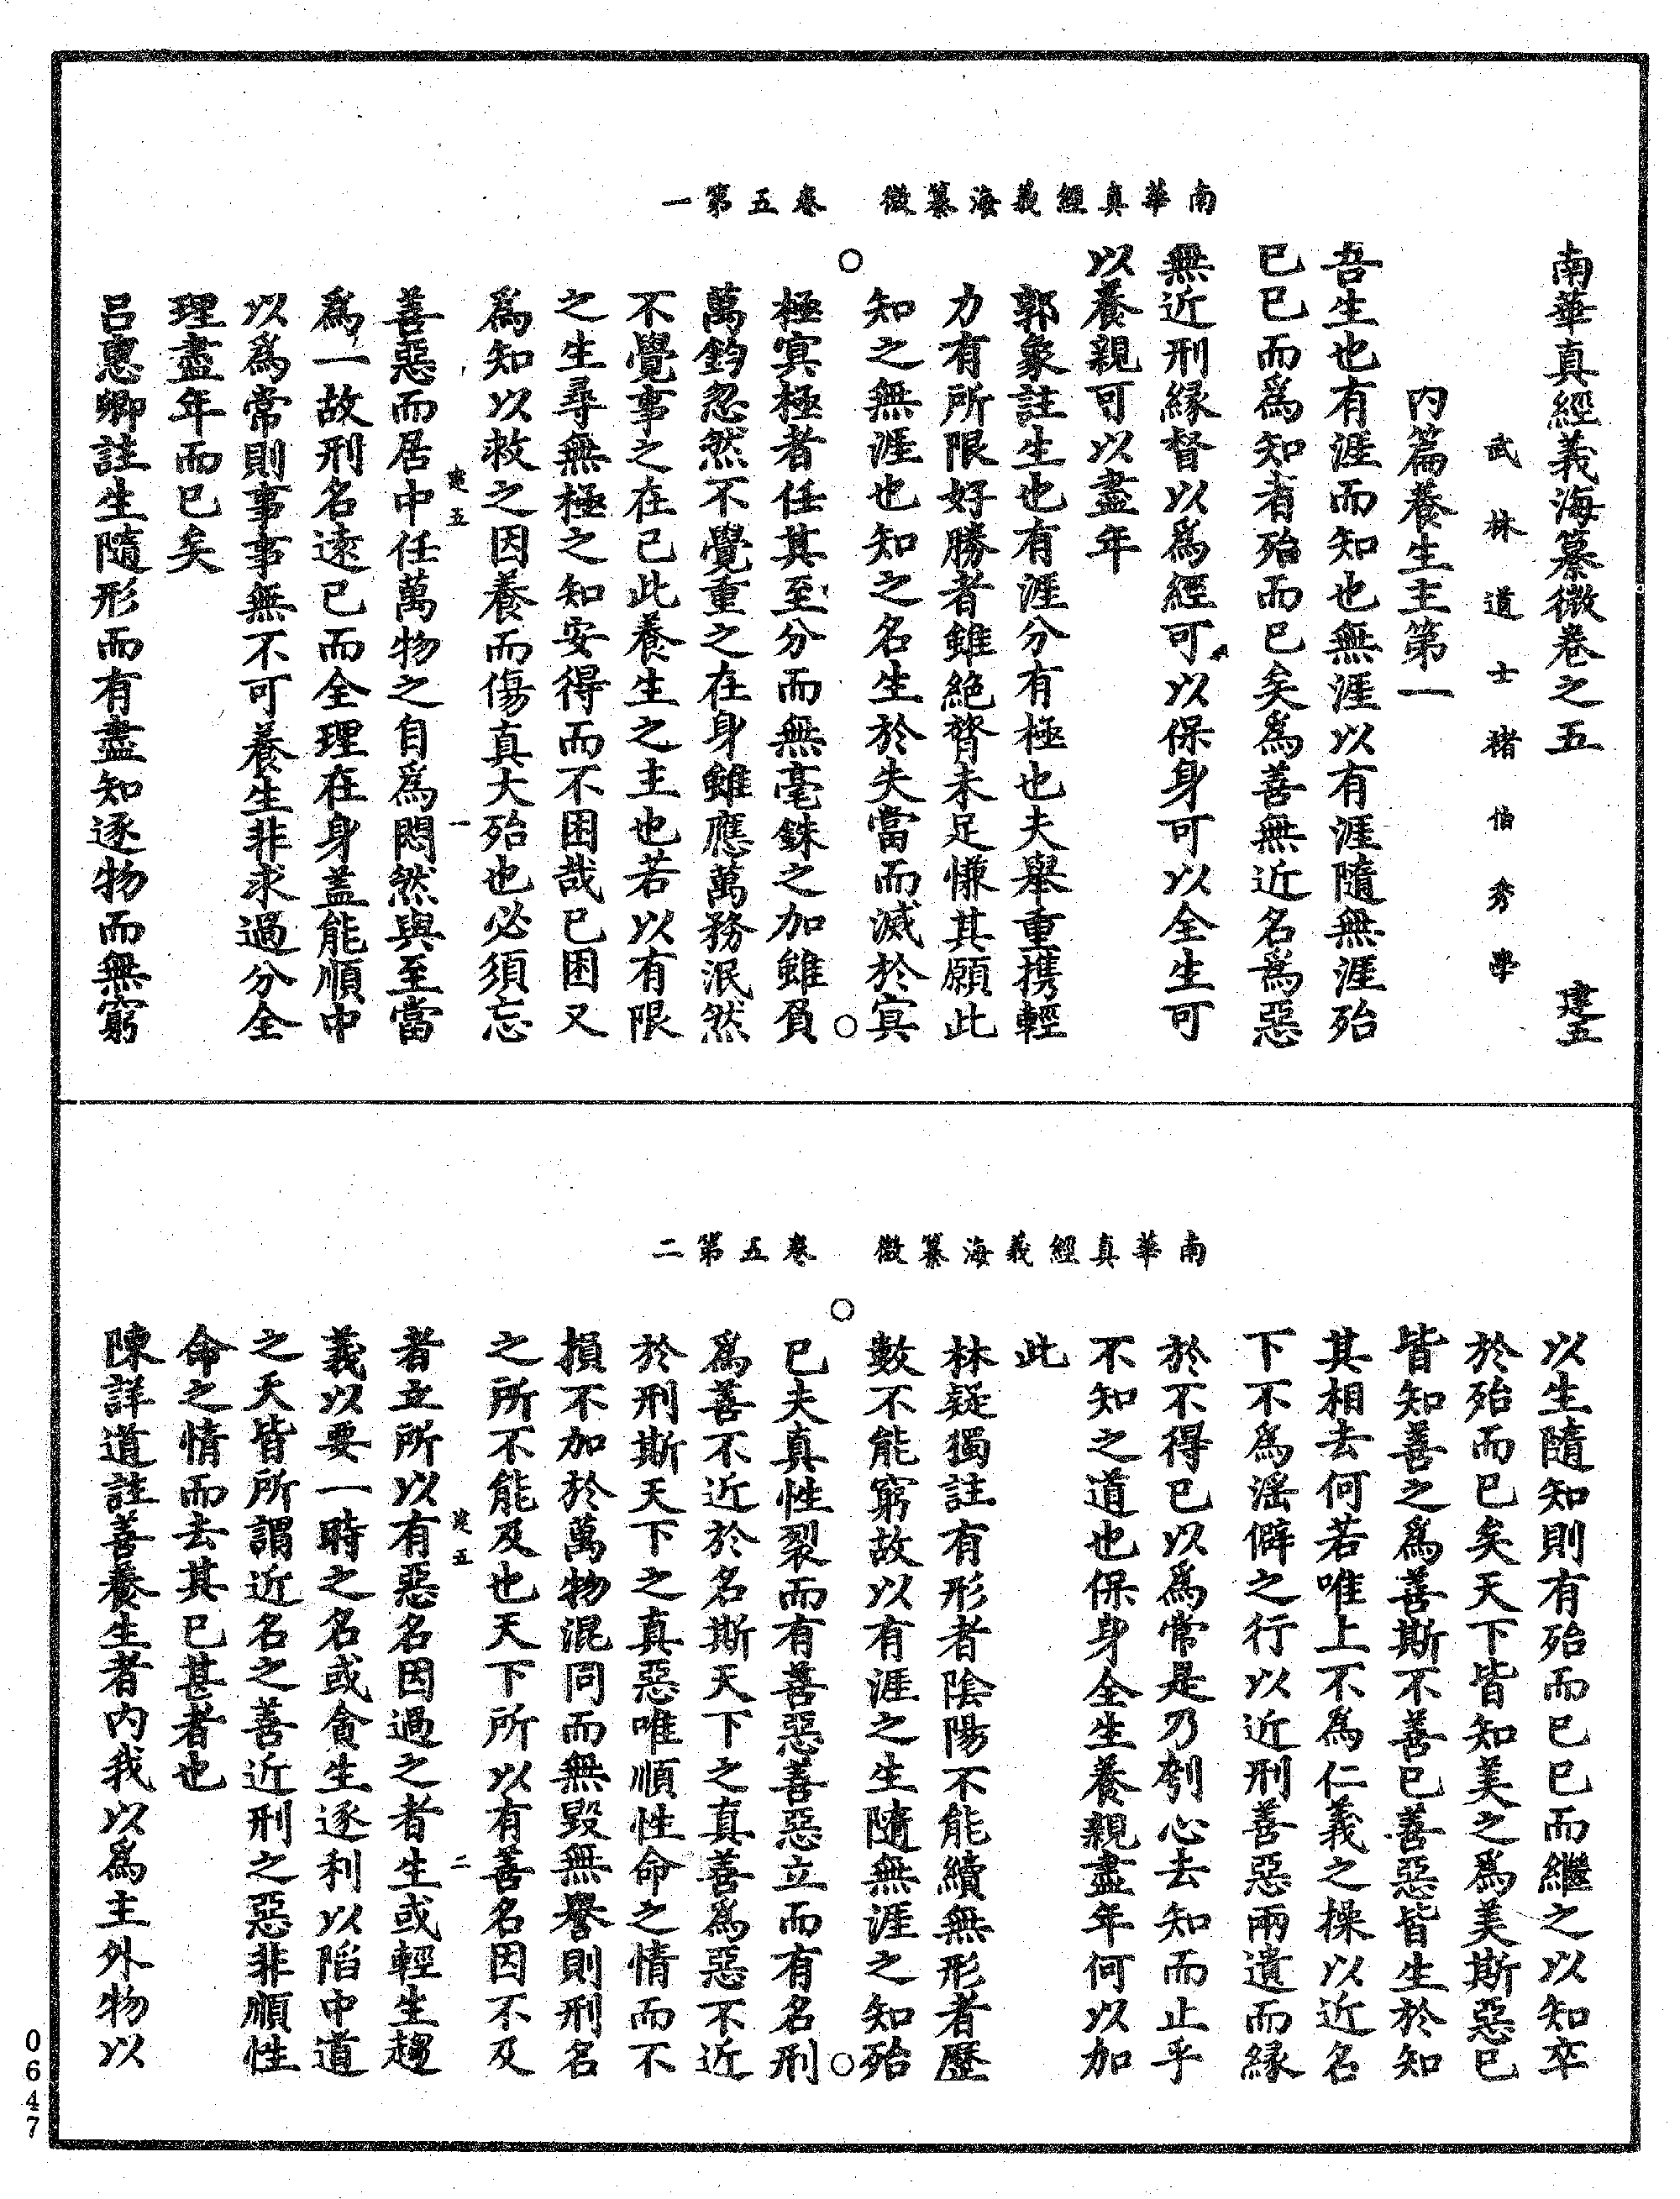 南華真經義海纂微　卷五第一
南華真經義海纂微卷之五　建五
武林道士褚伯秀學
內篇養生主第一
吾生也有涯而知也無涯以有涯隨無涯殆
已已而為知者殆而已矣為善無近名為惡
無近刑緣督以為經可以保身可以全生可
以養親可以盡年
郭象註生也有涯分有極也夫舉重攜輕
力有所限好勝者雖絕膂未足慊其願此
知之無涯也知之名生於失當而滅於冥
極冥極者任其至分而無毫銖之加雖負
萬鈞忽然不覺重之在身雖應萬務泯然
不覺事之在己此養生之主也若以有限
之生尋無極之知安得而不困哉已困又
為知以救之因養而傷真大殆也必須忘
建五　一
善惡而居中任萬物之自為悶然與至當
為一故刑名遠已而全理在身蓋能順中
以為常則事事無不可養生非求過分全
理盡年而已矣
呂惠卿註生隨形而有盡知逐物而無窮
南華真經義海纂微　卷五第二
以生隨知則有殆而已已而繼之以知卒
於殆而已矣天下皆知美之為美斯惡已
皆知善之為善斯不善已善惡皆生於知
其相去何若唯上不為仁義之操以近名
下不為淫僻之行以近刑善惡兩遺而緣
於不得已以為常是乃刳心去知而止乎
不知之道也保身全生養親盡年何以加
此
林疑獨註有形者陰陽不能續無形者歷
數不能窮故以有涯之生隨無涯之知殆
已夫真性裂而有善惡善惡立而有名刑
為善不近於名斯天下之真善為惡不近
於刑斯天下之真惡唯順性命之情而不
損不加於萬物混同而無毀無譽則刑名
之所不能及也天下所以有善名因不及
建五　二
者立所以有惡名因過之者生或輕生趨
義以要一時之名或貪生逐利以陷中道
之夭皆所謂近名之善近刑之惡非順性
命之情而去其已甚者也
陳詳道註善養生者內我以為主外物以
0647